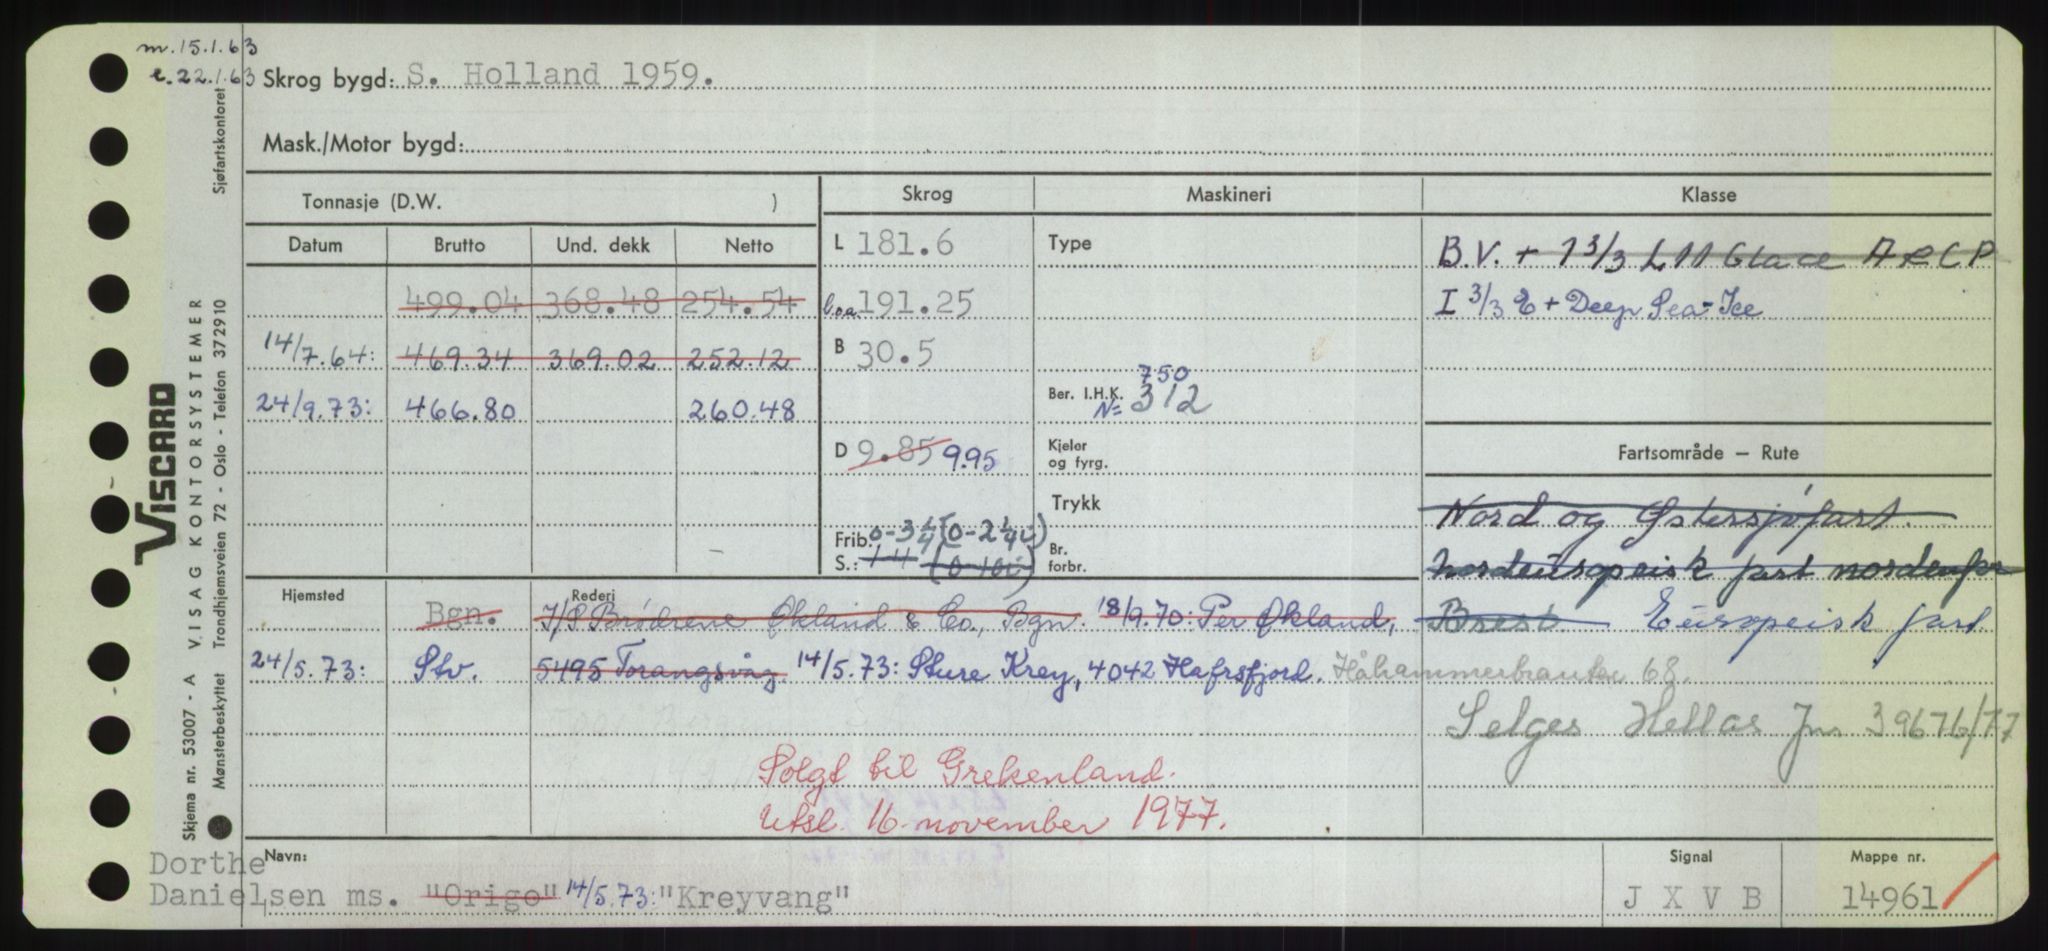 m. 15.1.63
e. 22.1.63
Skrog bygd: S. Holland 1959.
Mask./Motor bygd:
Tonnasje (D.W. )
Skrog
Maskineri
Klasse
Datum Brutto Und. dekk Netto
L 181.6
Type
B.V. + 1 3/3 L 11 Glace A & C P
499.04 368.48 254.54
l.o.a. 191.25
I 3/3 E + Deep Sea - Ice
14/7.64: 469.34 369.02 252.12
B 30.5
24/9.73: 466.80 260.48
Ber. I.H.K. 750
N= 312
D 9.85 9.95
Kjeler
og fyrg.
Fartsområde – Rute
Trykk
Nord og Østersjøfart.
Frib. 0-3 1/4 (0-2 1/4 i)
S.: 1-4 (0-10i)
Br.
forbr.
Nordeuropeisk fart nordenfor
Hjemsted
Rederi
Bgn. I/S Brødrene Økland & Co., Bgn. 18/9.70: Per Økland,
Brest. Europeisk fart
24/5.73: Stv. 5495 Torangsvåg 14/5.73: Sture Krey, 4042 Hafrsfjord. Håhammerbrauten 68.
Selges Hellas Jnr 39676/77
Solgt til Grekenland.
Utsl. 16. november 1977.
Navn:
Dorthe
Danielsen ms. "Origo" 14/5.73: "Kreyvang"
Signal
J X V B
Mappe nr.
14961
VISCARD
VISAG KONTORSYSTEMER
Skjema nr. 53007 - A
Mønsterbeskyttet Trondhjemsveien 72 - Oslo - Telefon 372910
Sjøfartskontoret